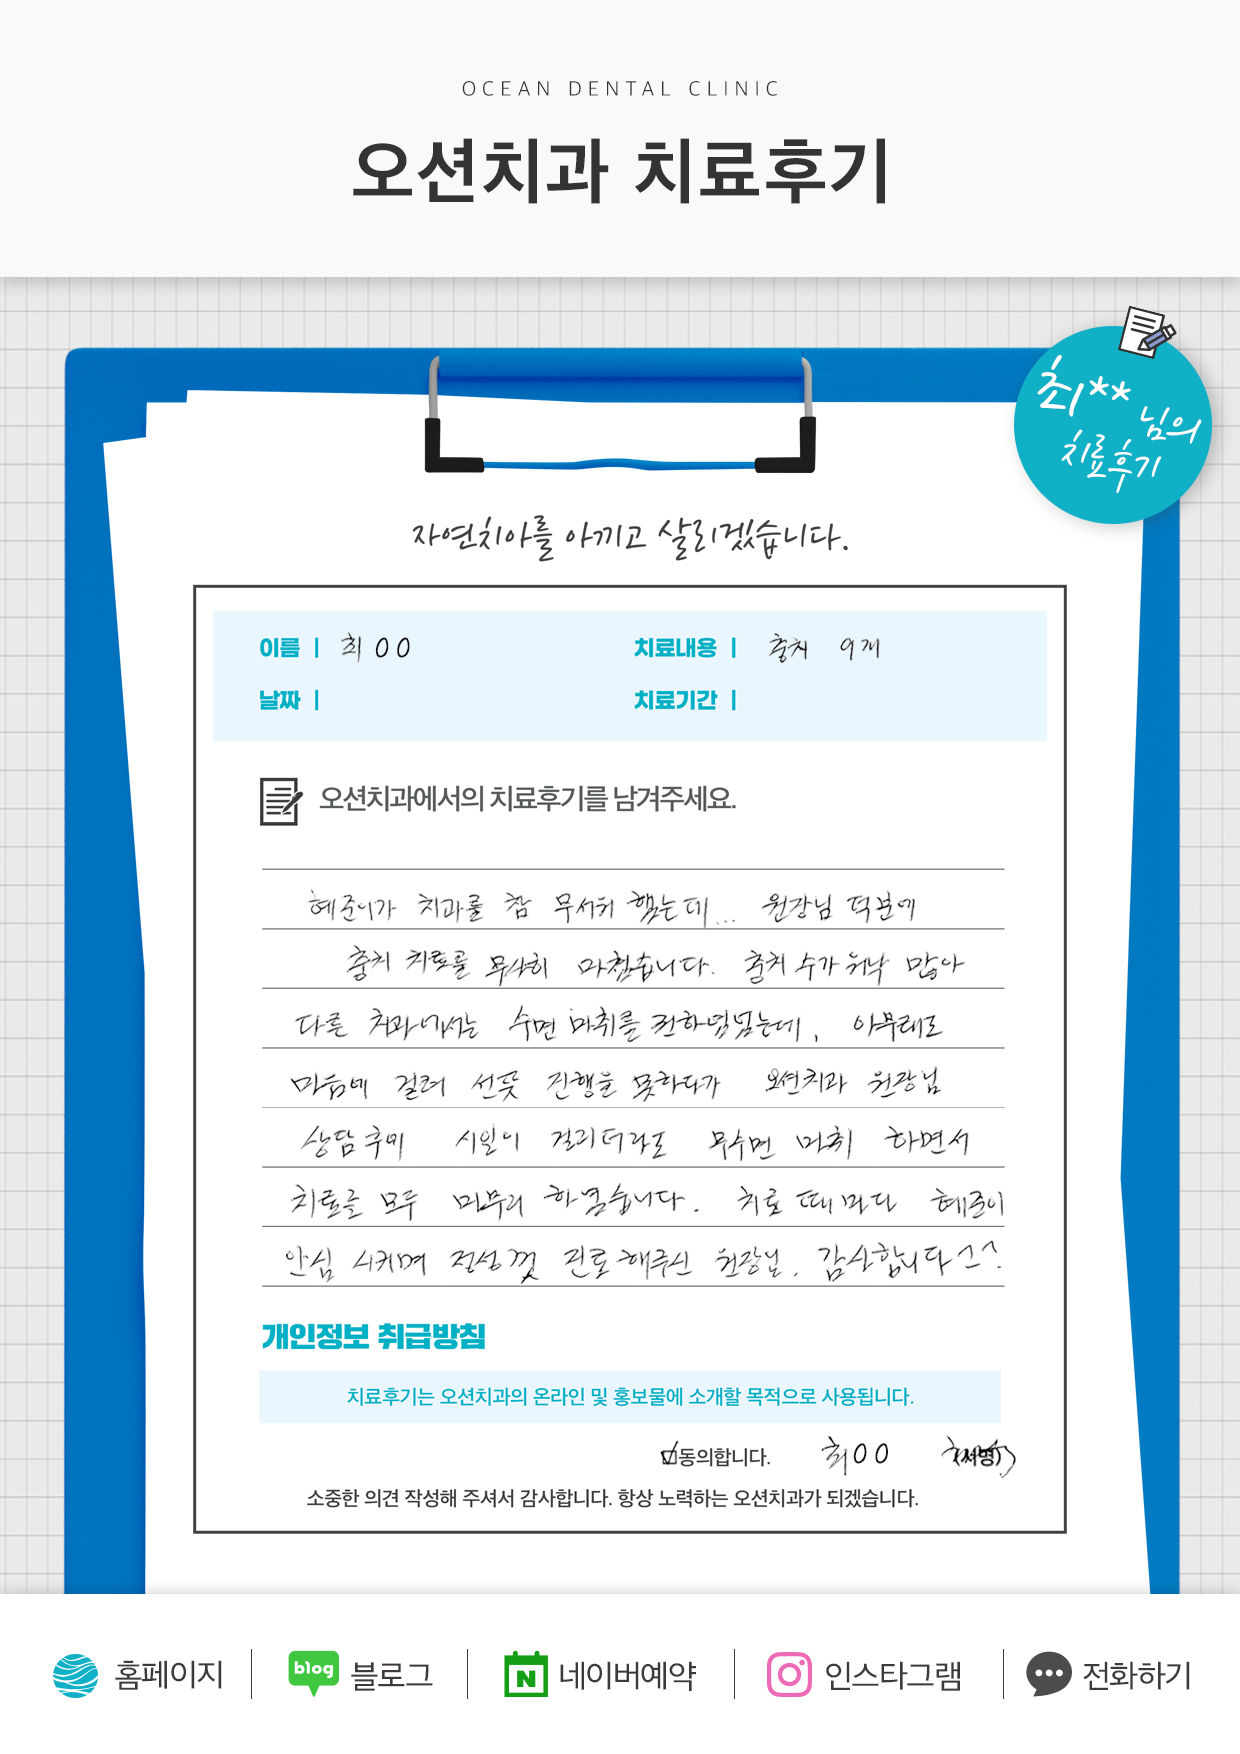 OCEAN DENTAL CLINIC
오션치과 치료후기
최** 님의
치료후기
자연치아를 아끼고 살리겠습니다.
이름 | 최OO
치료내용 | 충치 9개
날짜 |
치료기간 |
오션치과에서의 치료후기를 남겨주세요.
혜준이가 치과를 참 무서워 했는데... 원장님 덕분에
충치 치료를 무사히 마쳤습니다. 충치 수가 워낙 많아
다른 치과에서는 수면 마취를 권하셨었는데, 아무래도
마음에 걸려 선뜻 진행을 못하다가 오션치과 원장님
상담 후에 시일이 걸리더라도 무수면 마취 하면서
치료를 모두 마무리 하였습니다. 치료 때마다 혜준이
안심 시키며 정성껏 진료해주신 원장님. 감사합니다^^.
개인정보 취급방침
치료후기는 오션치과의 온라인 및 홍보물에 소개할 목적으로 사용됩니다.
동의합니다. 최OO (서명)
소중한 의견 작성해 주셔서 감사합니다. 항상 노력하는 오션치과가 되겠습니다.
홈페이지
blog 블로그
N 네이버예약
인스타그램
전화하기